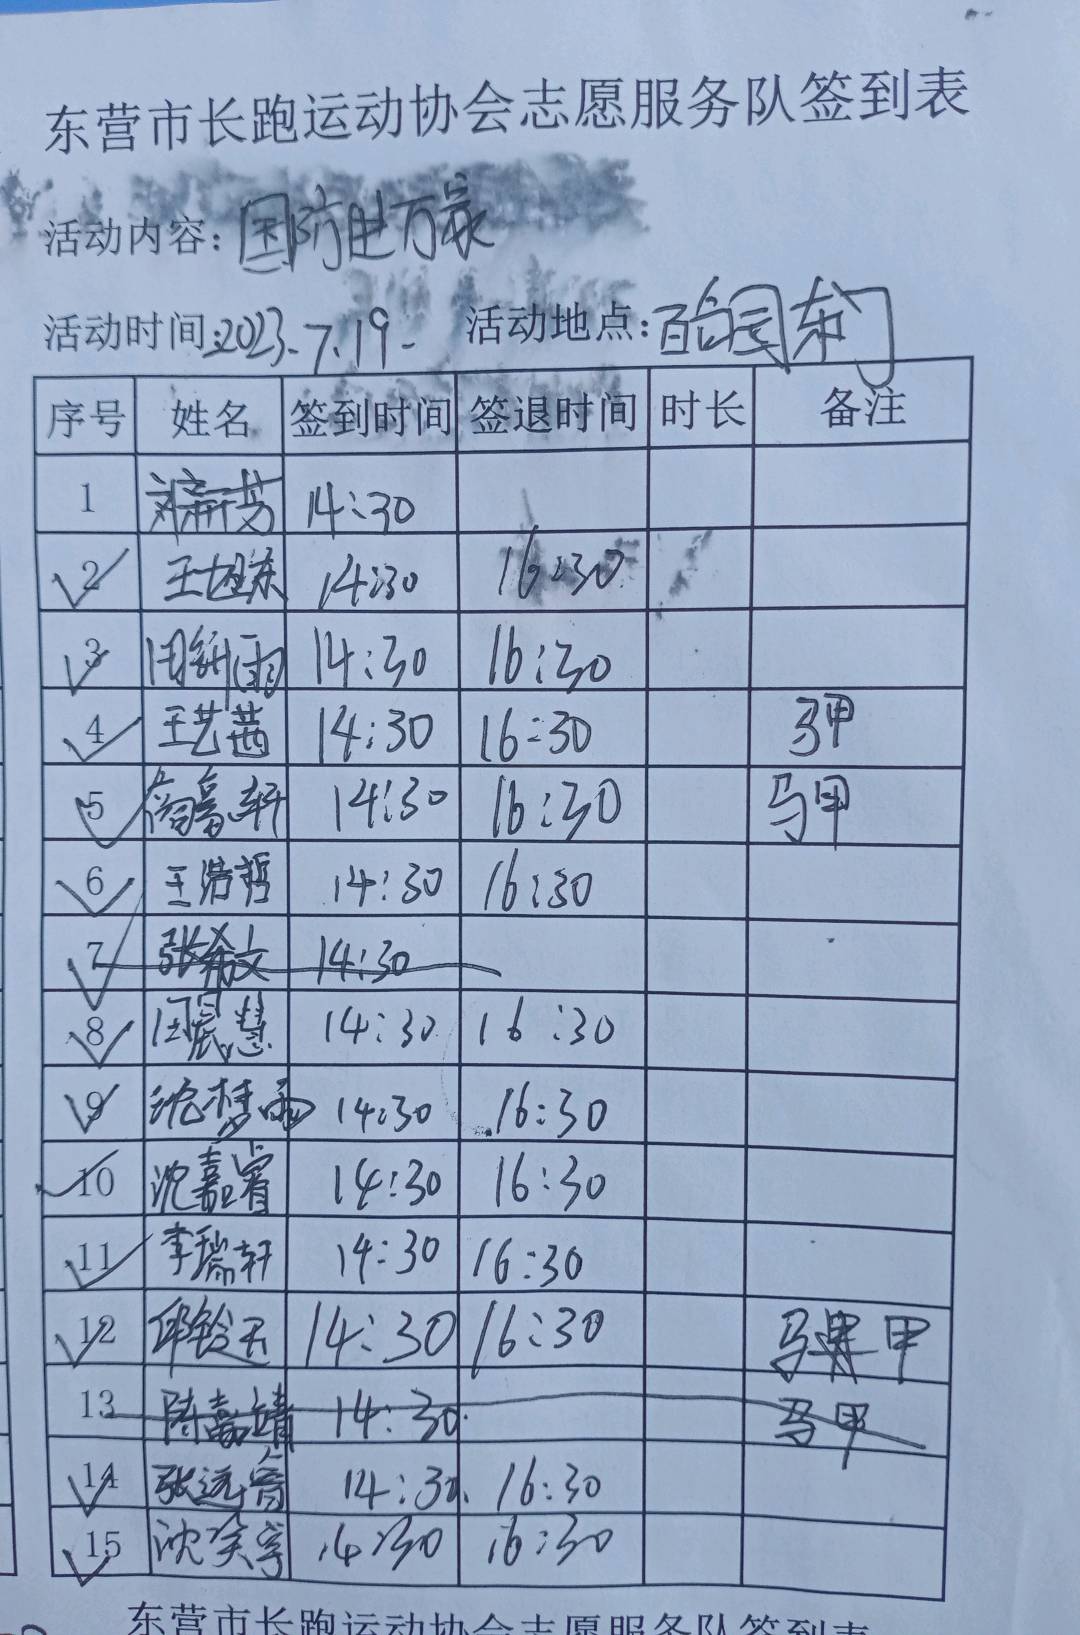 东营市长跑运动协会志愿服务队签到表
活动内容: 国防进万家
活动时间:2023.7.19. 活动地点: 东门
序号 姓名 签到时间 签退时间 时长 备注
1 刘新芳 14:30
2 14:30 16:30
3 14:30 16:30
4 王艺茜 14:30 16:30 马甲
5 14:30 16:30 马甲
6 王浩哲 14:30 16:30
7 张希文 14:30
8 晨慧 14:30 16:30
9 沈梦雨 14:30 16:30
10 沈嘉睿 14:30 16:30
11 李瑞轩 14:30 16:30
12 邱铃天 14:30 16:30 马甲
13 嘉靖 14:30 马甲
14 张远 14:30 16:30
15 沈 14:30 16:30
东营市长跑运动协会志愿服务队签到表